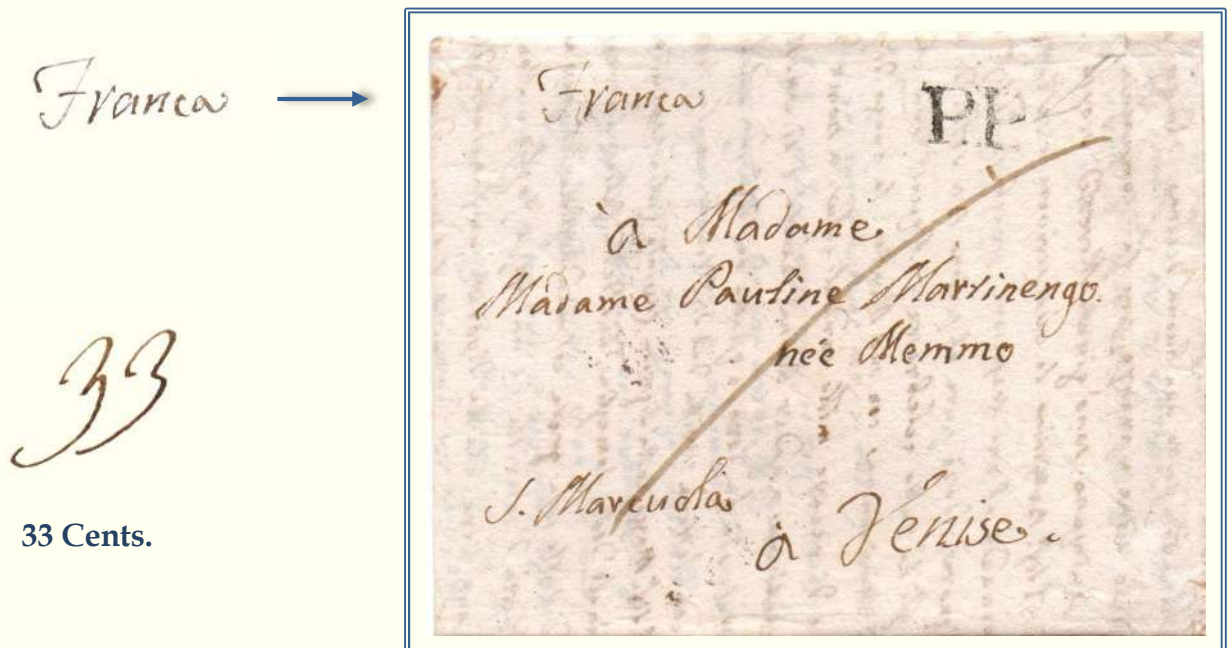 Franca
33
33 Cents.
Franca
P.P.
à Madame
Madame Pauline Martinengo.
née Memmo
S. Marcuola
à Venise.